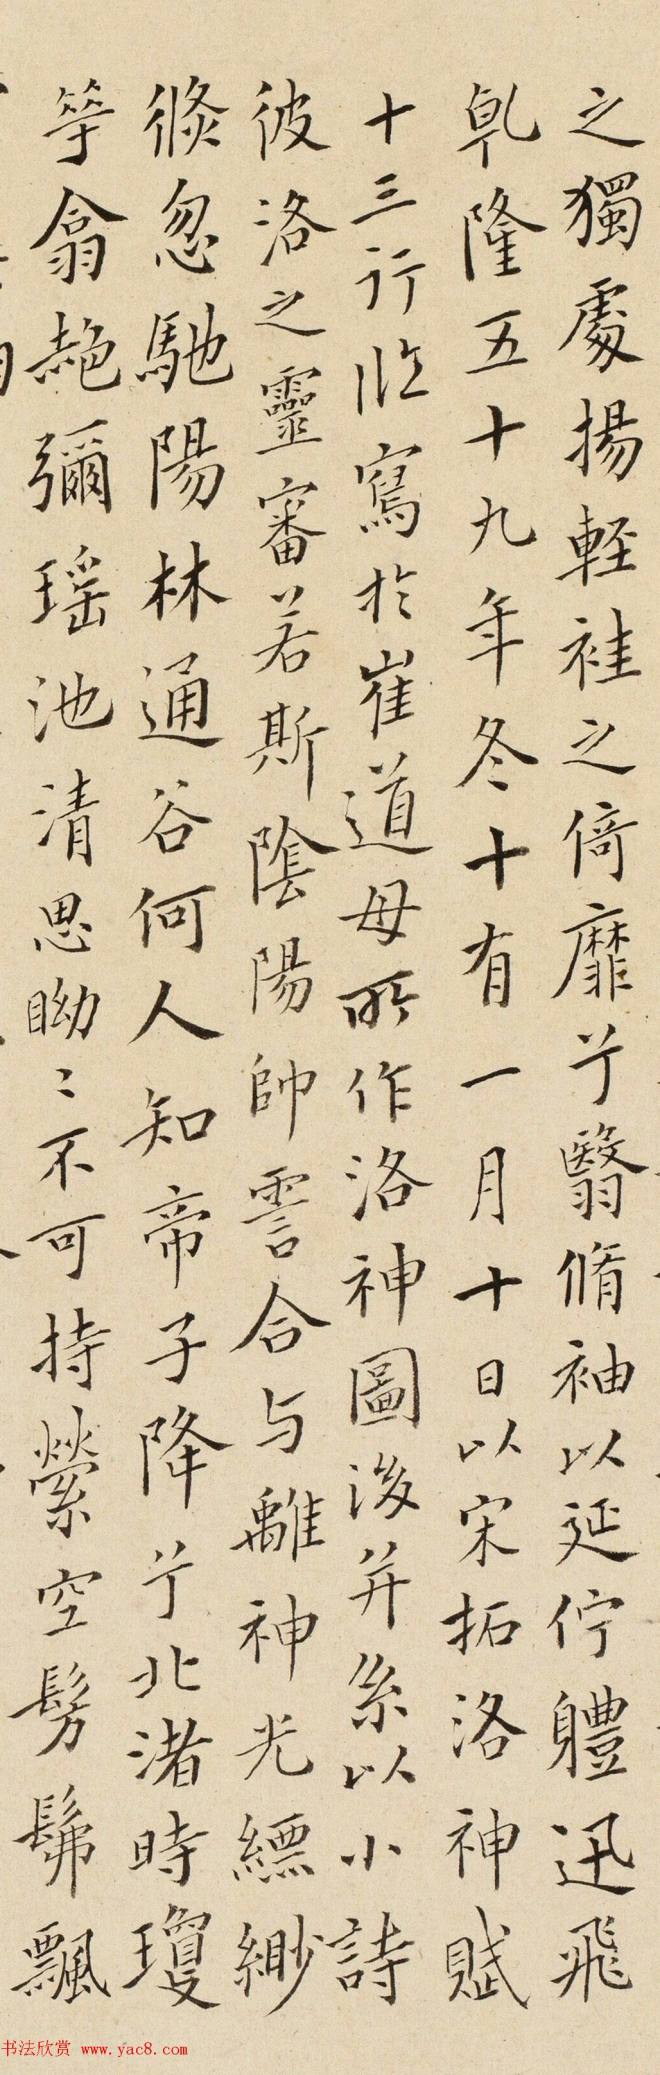 之獨處揚輕袿之倚靡兮翳脩袖以延佇體迅飛
乹隆五十九年冬十有一月十日以宋拓洛神賦
十三行臨寫於崔道母所作洛神圖後并系以小詩
彼洛之靈審若斯陰陽帥合与離神光縹緲
倏忽馳陽林通谷何人知帝子降兮北渚時瓊
華翕赩彌瑶池清思眑〻不可持縈空髣髴飄
书法欣赏 www.yac8.com